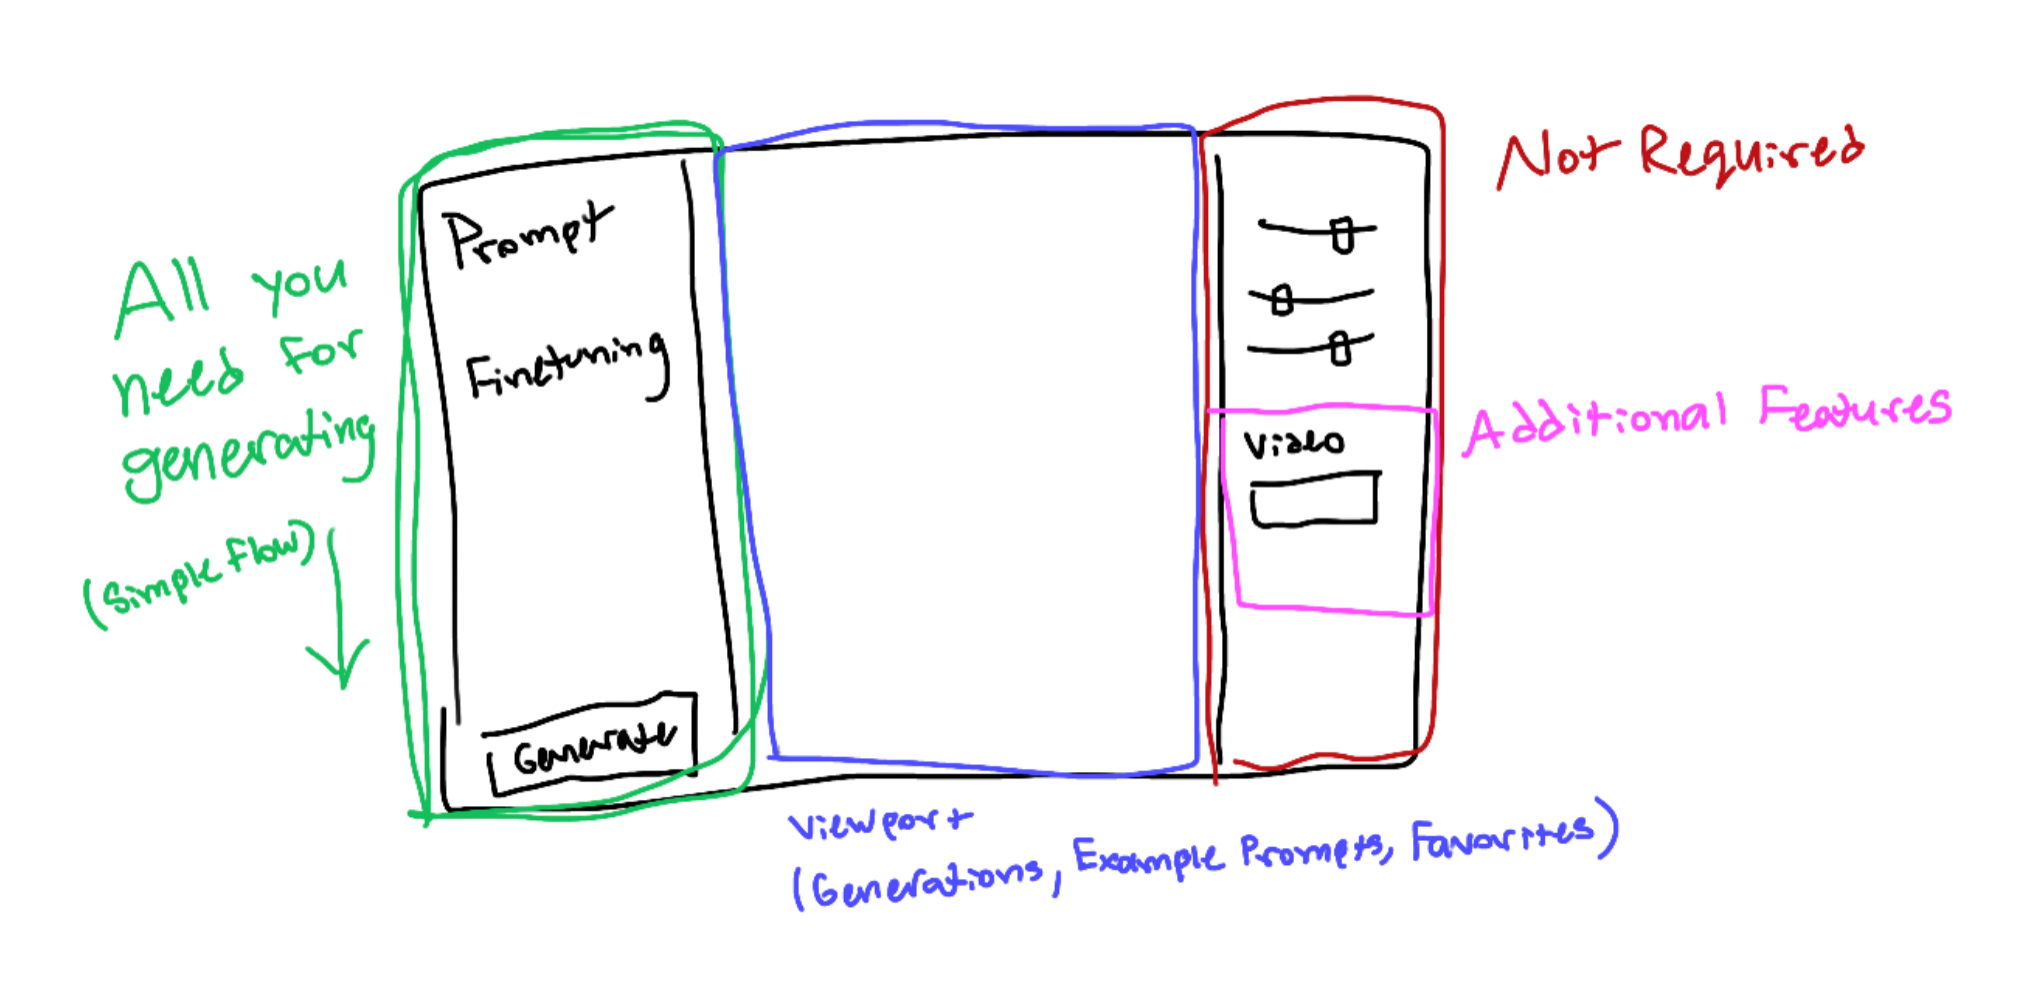 All you
need for
generating
(Simple Flow)
Prompt
Finetuning
Generate
Viewport
(Generations, Example Prompts, Favorites)
Not Required
Video
Additional Features